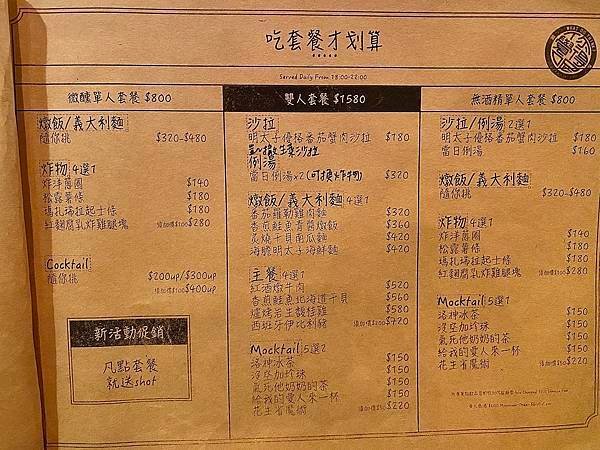 吃套餐才划算
Served Daily From 18:00-22:00
微醺單人套餐 $800
燉飯/義大利麵
隨你挑 $320-$480
炸物 4選1
炸洋蔥圈 $140
松露薯條 $180
瑪札瑞拉起士條 $180
紅麴腐乳炸雞腿塊 $280
Cocktail
隨你挑 $200up/$300up
$400up
新活動促銷
凡點套餐
就送shot
雙人套餐 $1580
沙拉
明太子優格番茄蟹肉沙拉 $180
例湯
當日例湯x2 (可換炸物) $320
燉飯/義大利麵 4選1
番茄羅勒雞肉麵 $320
香煎鮭魚青醬燉飯 $360
炙燒干貝南瓜麵 $420
海膽明太子海鮮麵 $420
主餐 4選1
紅酒燉牛肉 $520
香煎鮭魚北海道干貝 $560
爐烤岩生馥桂雞 $580
西班牙伊比利豬 $420
Mocktail 5選2
洛神冰茶 $150
沒空加珍珠 $150
氣死他奶奶的茶 $150
給我的愛人來一杯 $150
花王省魔術 $220
無酒精單人套餐 $800
沙拉/例湯 2選1
明太子優格番茄蟹肉沙拉 $180
當日例湯 $160
燉飯/義大利麵
隨你挑 $320-$480
炸物 4選1
炸洋蔥圈 $140
松露薯條 $180
瑪札瑞拉起士條 $180
紅麴腐乳炸雞腿塊 $280
Mocktail 5選1
洛神冰茶 $150
沒空加珍珠 $150
氣死他奶奶的茶 $150
給我的愛人來一杯 $150
花王省魔術 $220